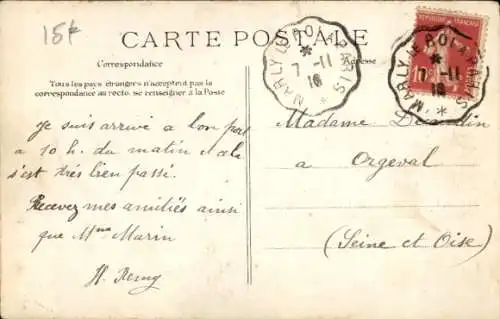 15f
CARTE POSTALE
Correspondance
Adresse
Tous les pays étrangers n'acceptent pas la
correspondance au recto, se renseigner à la Poste
MARLY LE ROI A PARIS
7 -11
16
RÉPUBLIQUE FRANÇAISE
10
MARLY LE ROI A PARIS
7 -11
16
Je suis arrivé a bon port
a 10 h. du matin
s'est très bien passé.
Recevez mes amitiés ainsi
que Mme Marin
H. Remy
Madame
a
Orgeval
(Seine et Oise)